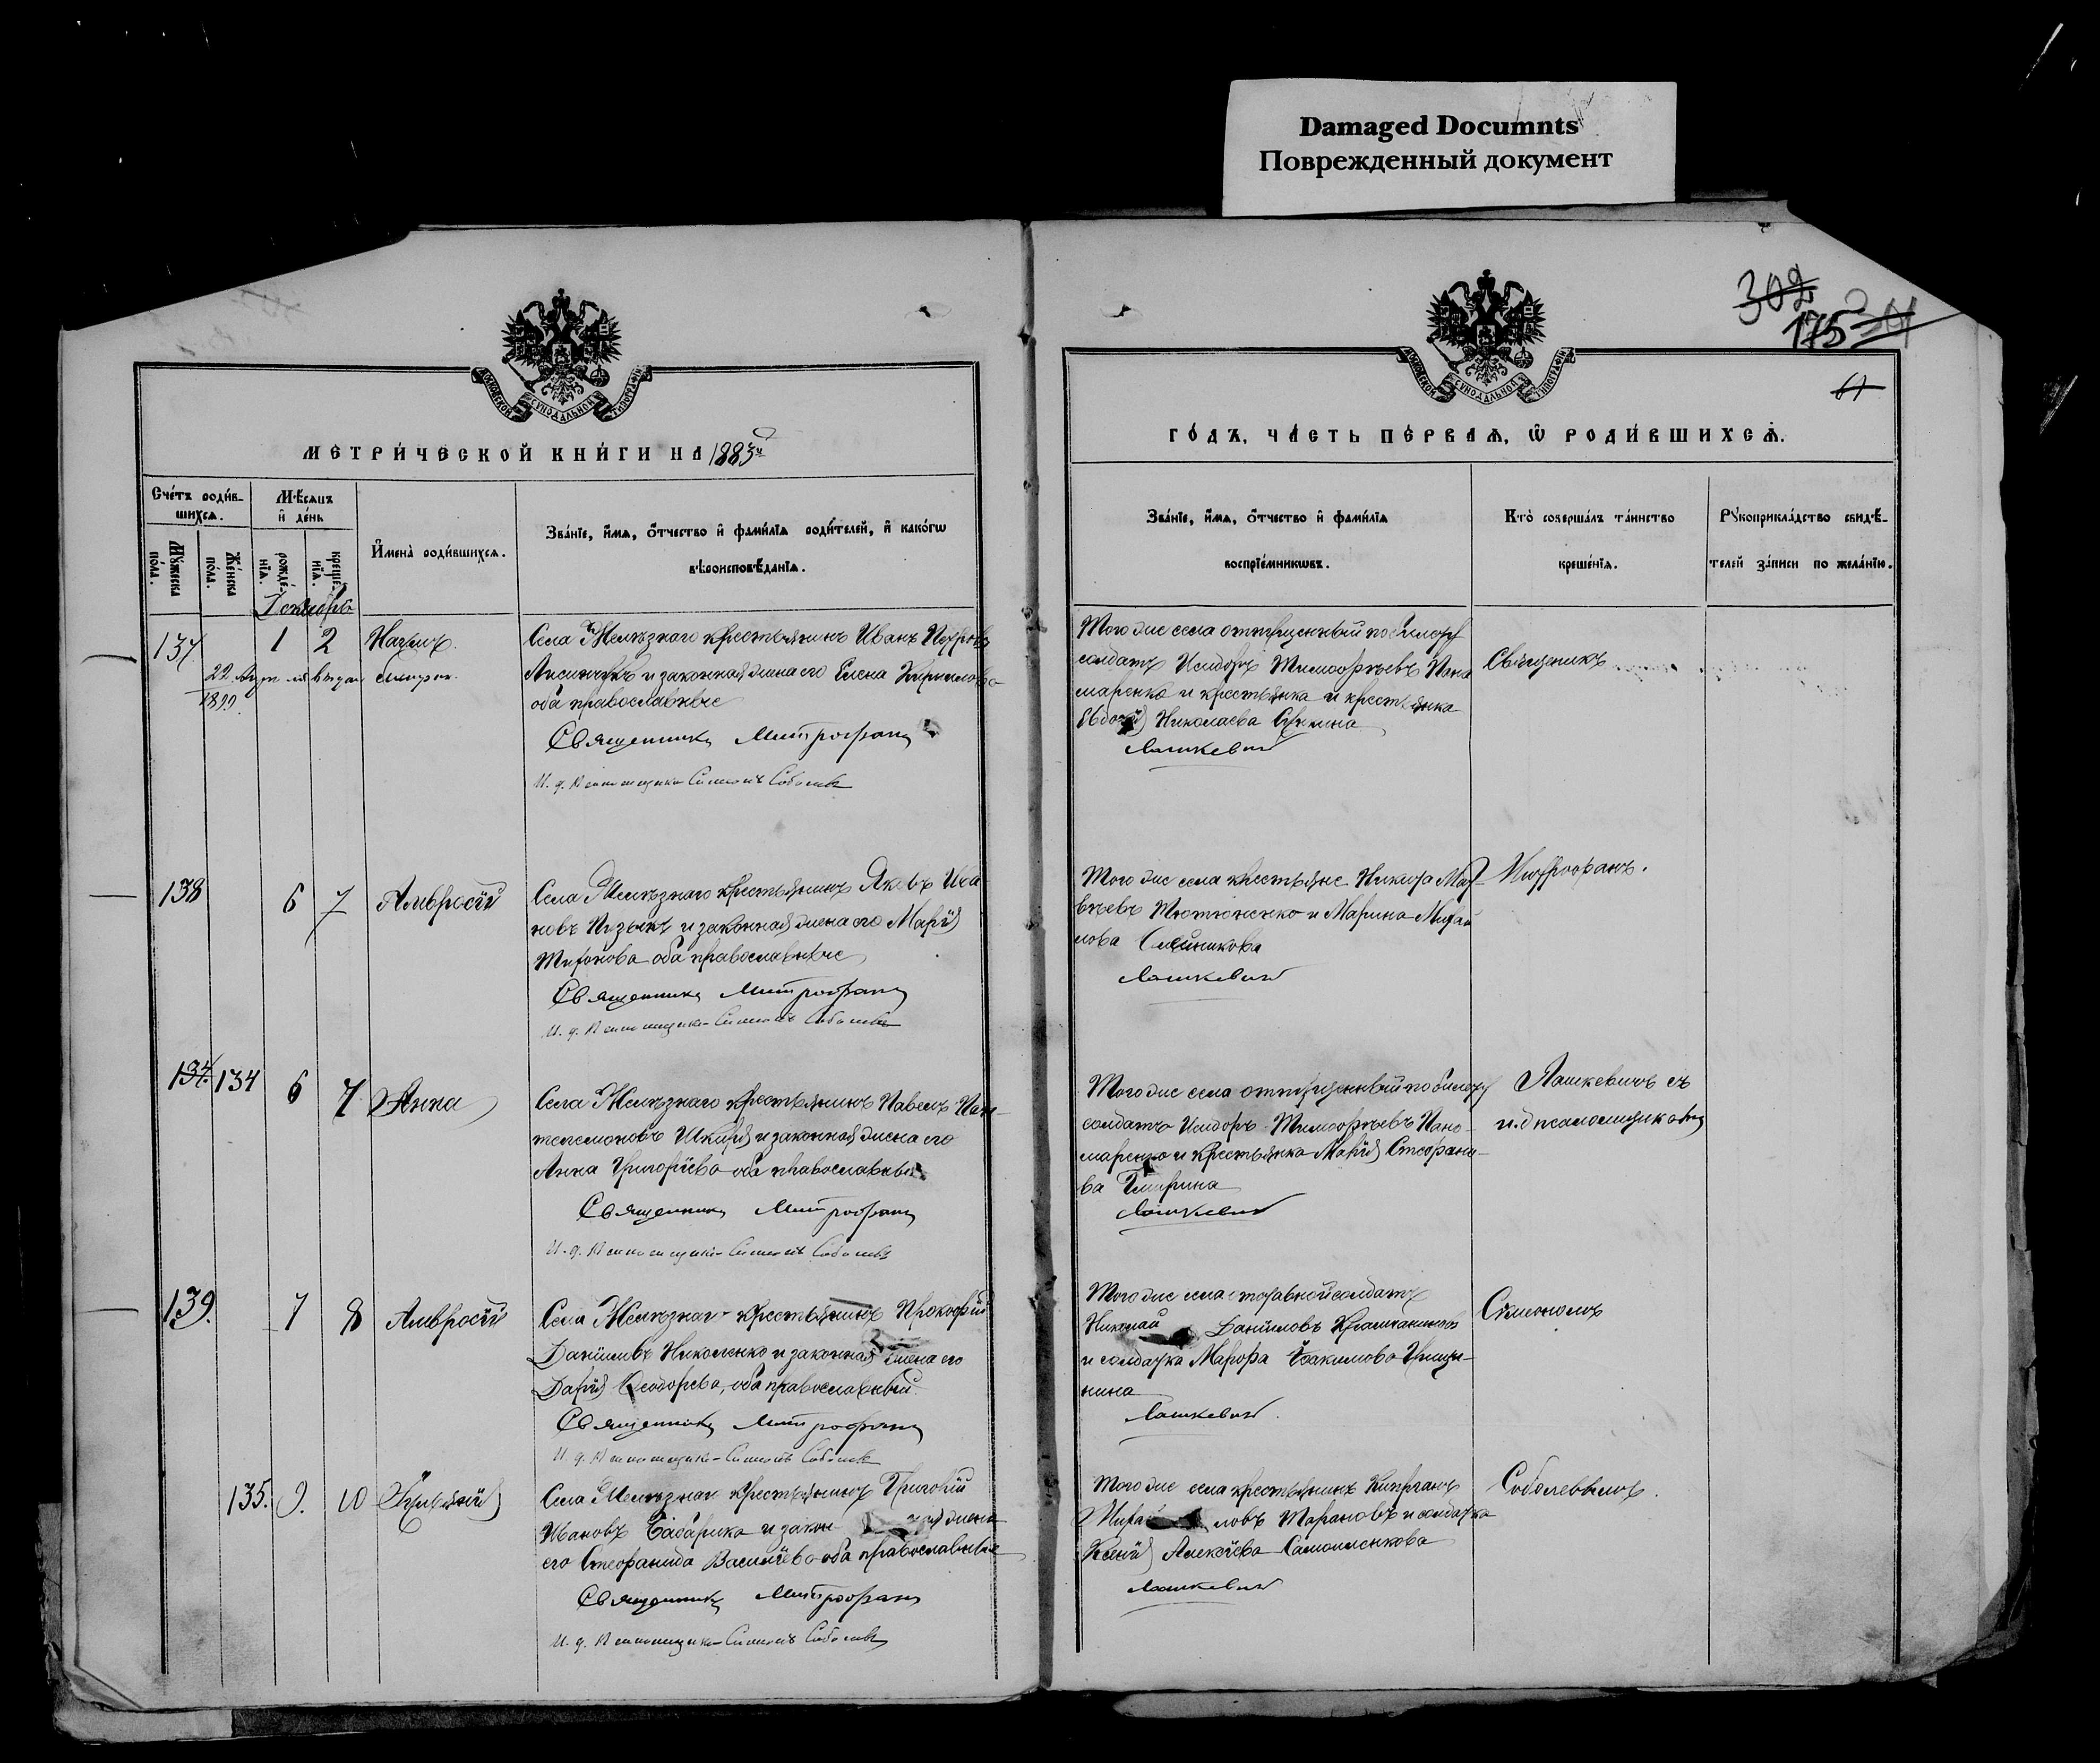 Damaged Documnts
Поврежденный документ
302
175
61
МЕТРИ́ЧЕСКОЙ КНИ́ГИ НА 1883й
ГО́ДЪ, ЧА́СТЬ ПЕ́РВАѦ, Ѡ҆ РОДИ́ВШИХСѦ.
Сче́тъ роди́в-
шихсѧ.
Мѣ́сяцъ
и҆ де́нь
Мꙋ́жеска
по́ла.
Же́нска
по́ла.
рожде́-
нїѧ.
креще́-
нїѧ.
И҆мена̀ роди́вшихсѧ.
Зва́нїе, и҆́мѧ, ѻ҆́тчество и҆ фамилїѧ роди́телей, и҆ како́гѡ
вѣроисповѣ́данїѧ.
Зва́нїе, и҆́мѧ, ѻ҆́тчество и҆ фамилїѧ
воспрїе́мникѡвъ.
Кто̀ соверша́лъ та́инство
креще́нїѧ.
Рꙋкоприкла́дство свидѣ́-
телей за́писи по жела́нїю.
Декабрь
137
1 2
Села Желѣзнаго крестьянинъ Иванъ Петровъ
и законная жена его Елена Кириллова
оба православные
Священникъ Митрофанъ
И. д. Псаломщика Симеонъ Соболевъ
Того же села отпущенный по билету
солдатъ Исидоръ Тимофѣевъ Поно
маренко и крестьянка и крестьянка
Николаева
Лашкевичъ
Священникъ
22
выдан
1899
138
6 7
Амвросій
Села Желѣзнаго крестьянинъ Яковъ Ива
новъ и законная жена его Марія
оба православные
Священникъ Митрофанъ
И. д. Псаломщика Симеонъ Соболевъ
Того же села крестьяне Никифоръ Мат-
вѣевъ Тютюненко и Марина Михаи
лова Олейникова
Лашкевичъ
Митрофанъ
134
6 7
Анна
Села Желѣзнаго крестьянинъ Павелъ Пан-
телемоновъ Шкиря и законная жена его
Анна Григоріева оба православные
Священникъ Митрофанъ
И. д. Псаломщика Симеонъ Соболевъ
Того же села отпущенный по билету
солдатъ Исидоръ Тимофѣевъ Поно-
маренко и крестьянка Марія Стефано-
ва
Лашкевичъ
Лашкевичъ съ
и. д псаломщикомъ
139.
7 8
Амвросій
Села Желѣзнаго крестьянинъ Прокофій
Даніиловъ Николенко и законная жена его
Дарія Ѳеодорова, оба православный.
Священникъ Митрофанъ
И. д. Псаломщика Симеонъ Соболевъ
Того же села солдатъ
Николай Даніиловъ
и солдатка Марфа Іоакимова Грищи-
нина
Лашкевичъ
Симеономъ
135.
9. 10
Села Желѣзнаго крестьянинъ Григорій
Ивановъ и закон ная жена
его Стефанида Василіева оба православные
Священникъ Митрофанъ
И. д. Псаломщика Симеонъ Соболевъ
Того же села крестьянинъ Кипріанъ
Михаи ловъ Тарановъ и солдатка
Ксенія Алексіева Самойленкова
Лашкевичъ
Соболевымъ.